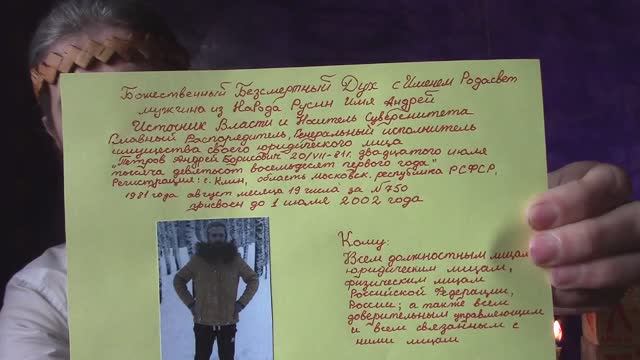 Божественный Безсмертный Дух с Именем Родасвет
мужчина из НаРода Русин Имя Андрей
Источник Власти и Носитель Суверенитета
Главный Распорядитель, Генеральный исполнитель
имущества своего юридического лица
"Петров Андрей Борисович" 20/VII-81г. двадцатого июля
тысяча девятьсот восемьдесят первого года"
Регистрация: г. Клин, область Московск. республика РСФСР,
1981 года август месяца 19 числа за N 750
присвоен до 1 июля 2002 года
Кому:
Всем должностным лицам
юридическим лицам,
физическим лицам
Российской Федерации,
России; а также всем
доверительным управляющим
и всем связанным с
ними лицам